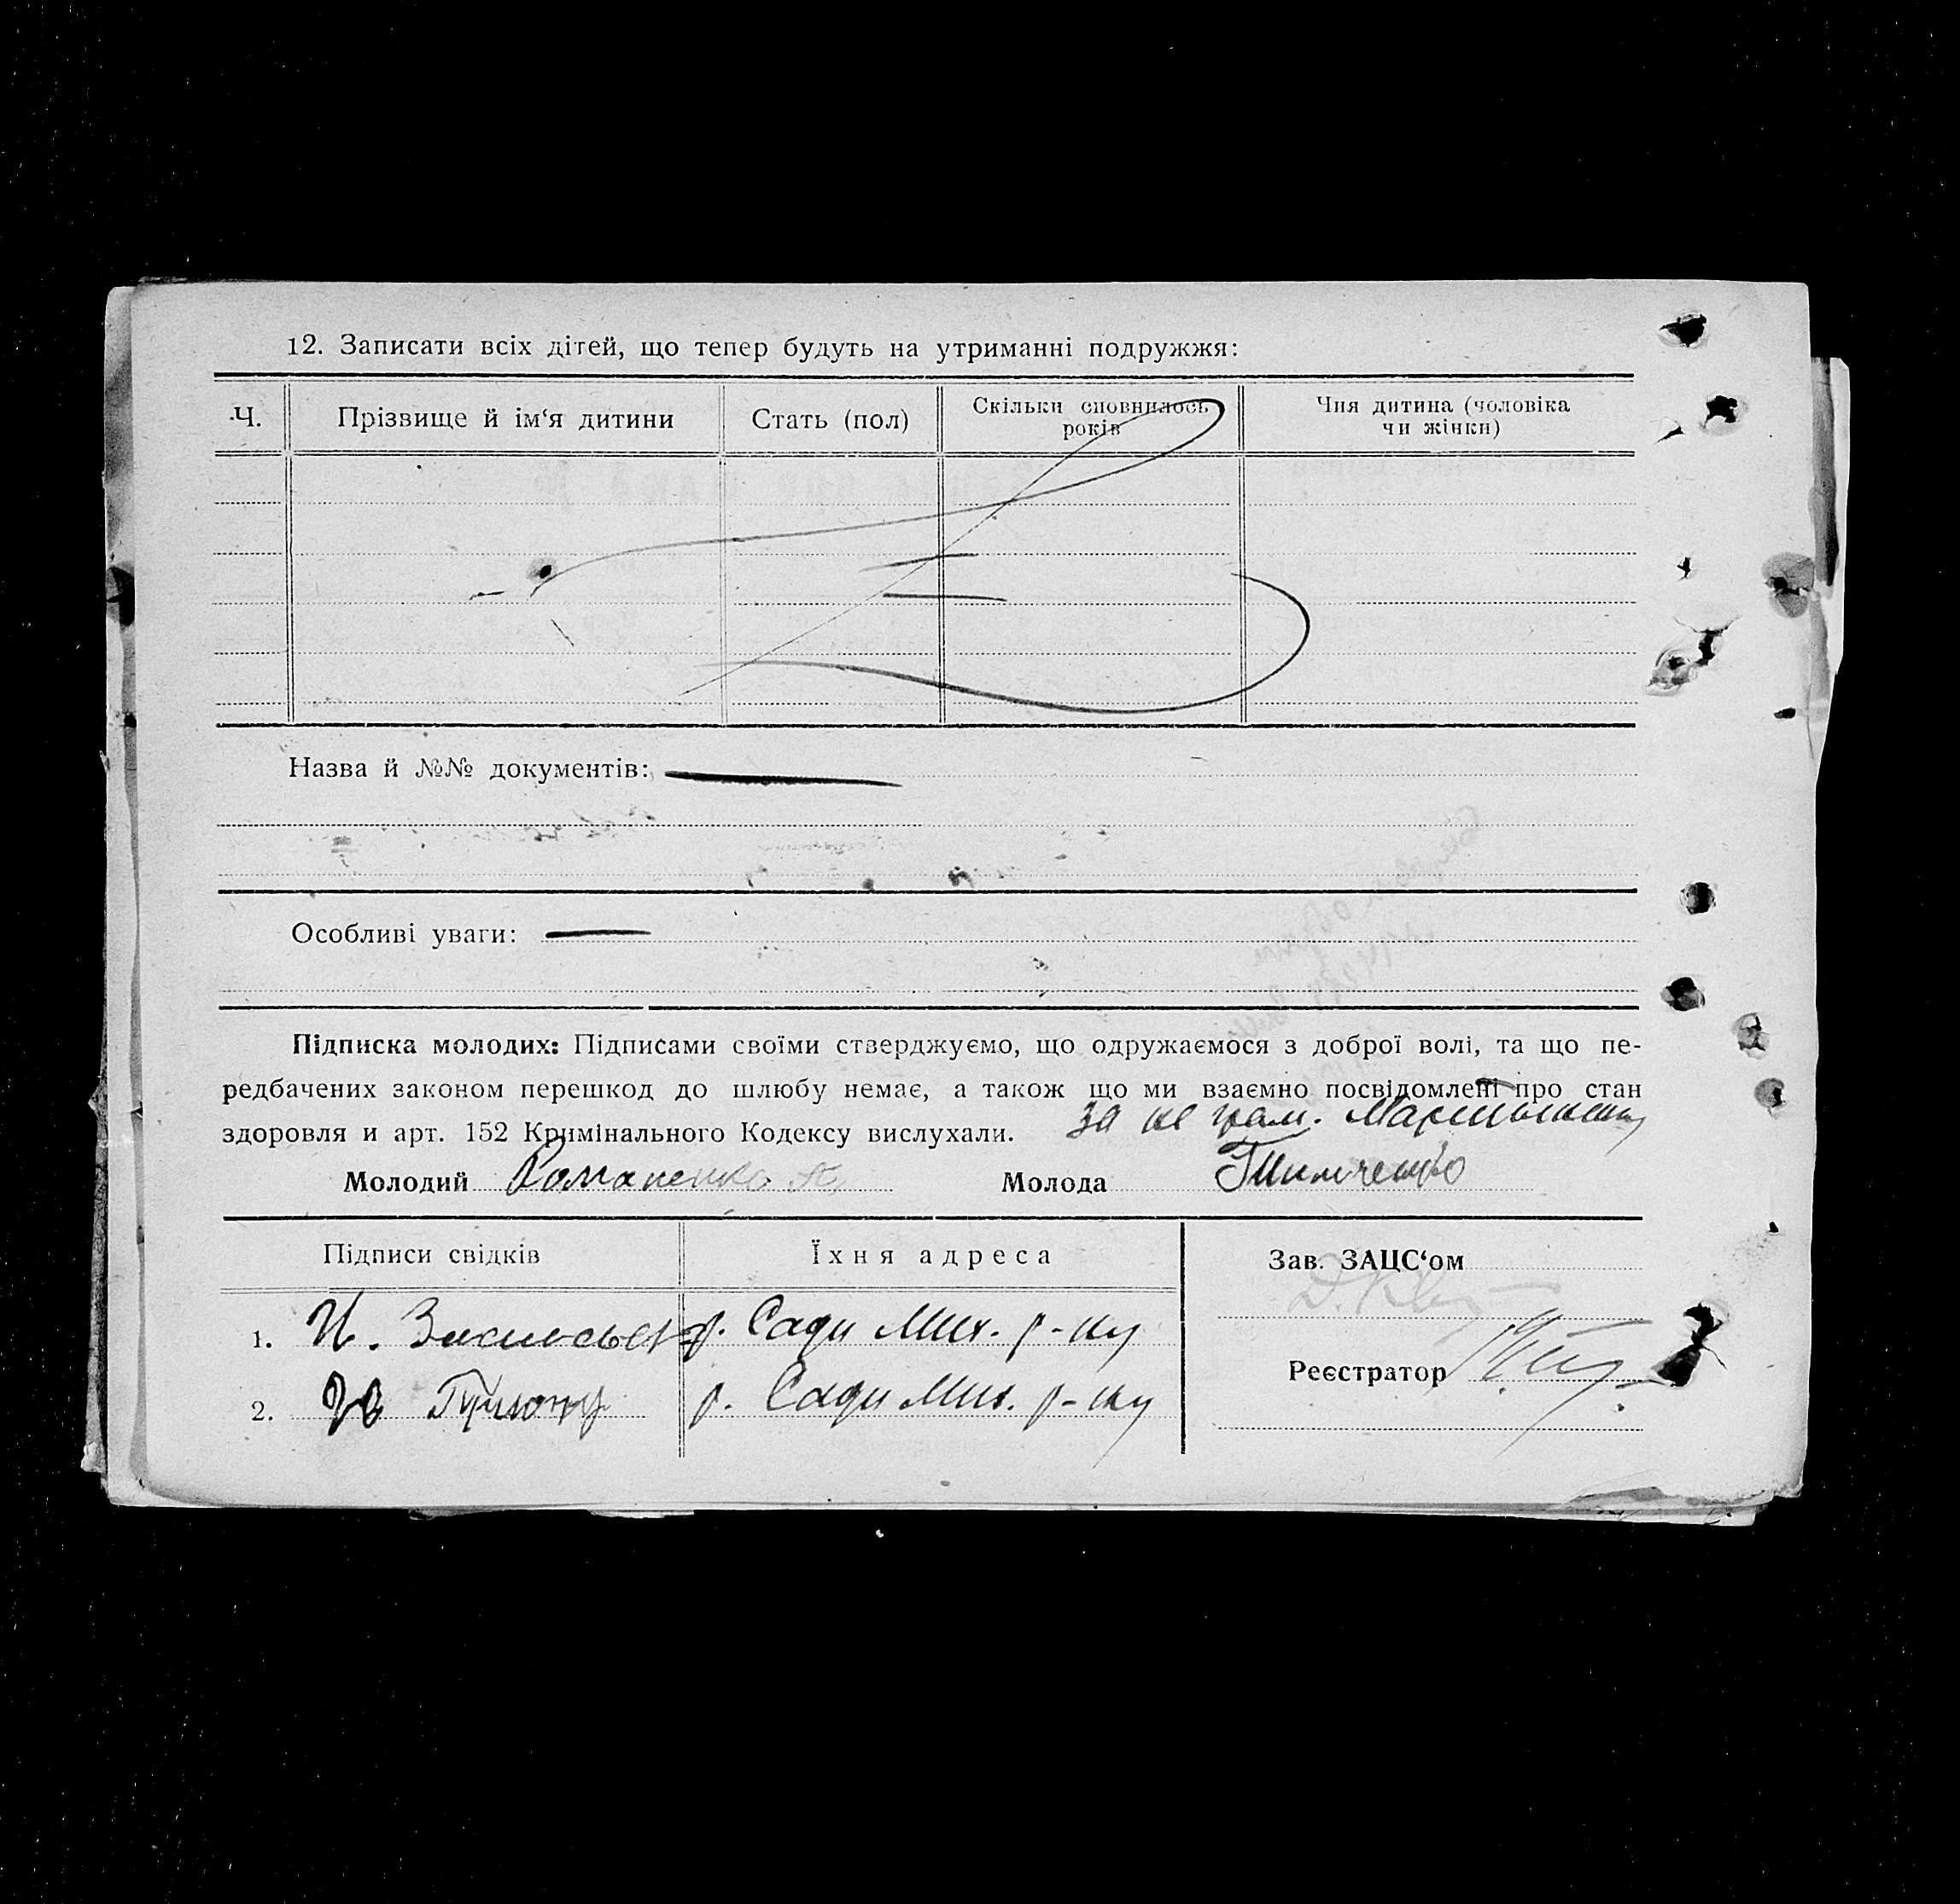 12. Записати всіх дітей, що тепер будуть на утриманні подружжя:
Ч.
Прізвище й ім‘я дитини
Стать (пол)
Скільки сповнилось
років
Чия дитина (чоловіка
чи жінки)
Назва й №№ документів:
Особливі уваги:
Підписка молодих: Підписами своїми стверджуємо, що одружаємося з доброї волі, та що пе-
редбачених законом перешкод до шлюбу немає, а також що ми взаємно посвідомлені про стан
здоровля и арт. 152 Кримінального Кодексу вислухали. за не грам.
Молодий Романенко Молода Тимченко
Підписи свідків
Їхня адреса
Зав. ЗАЦС‘ом
1. р. Сади Мих. р-ну
Реєстратор
2. р. Сади Мих. р-ну